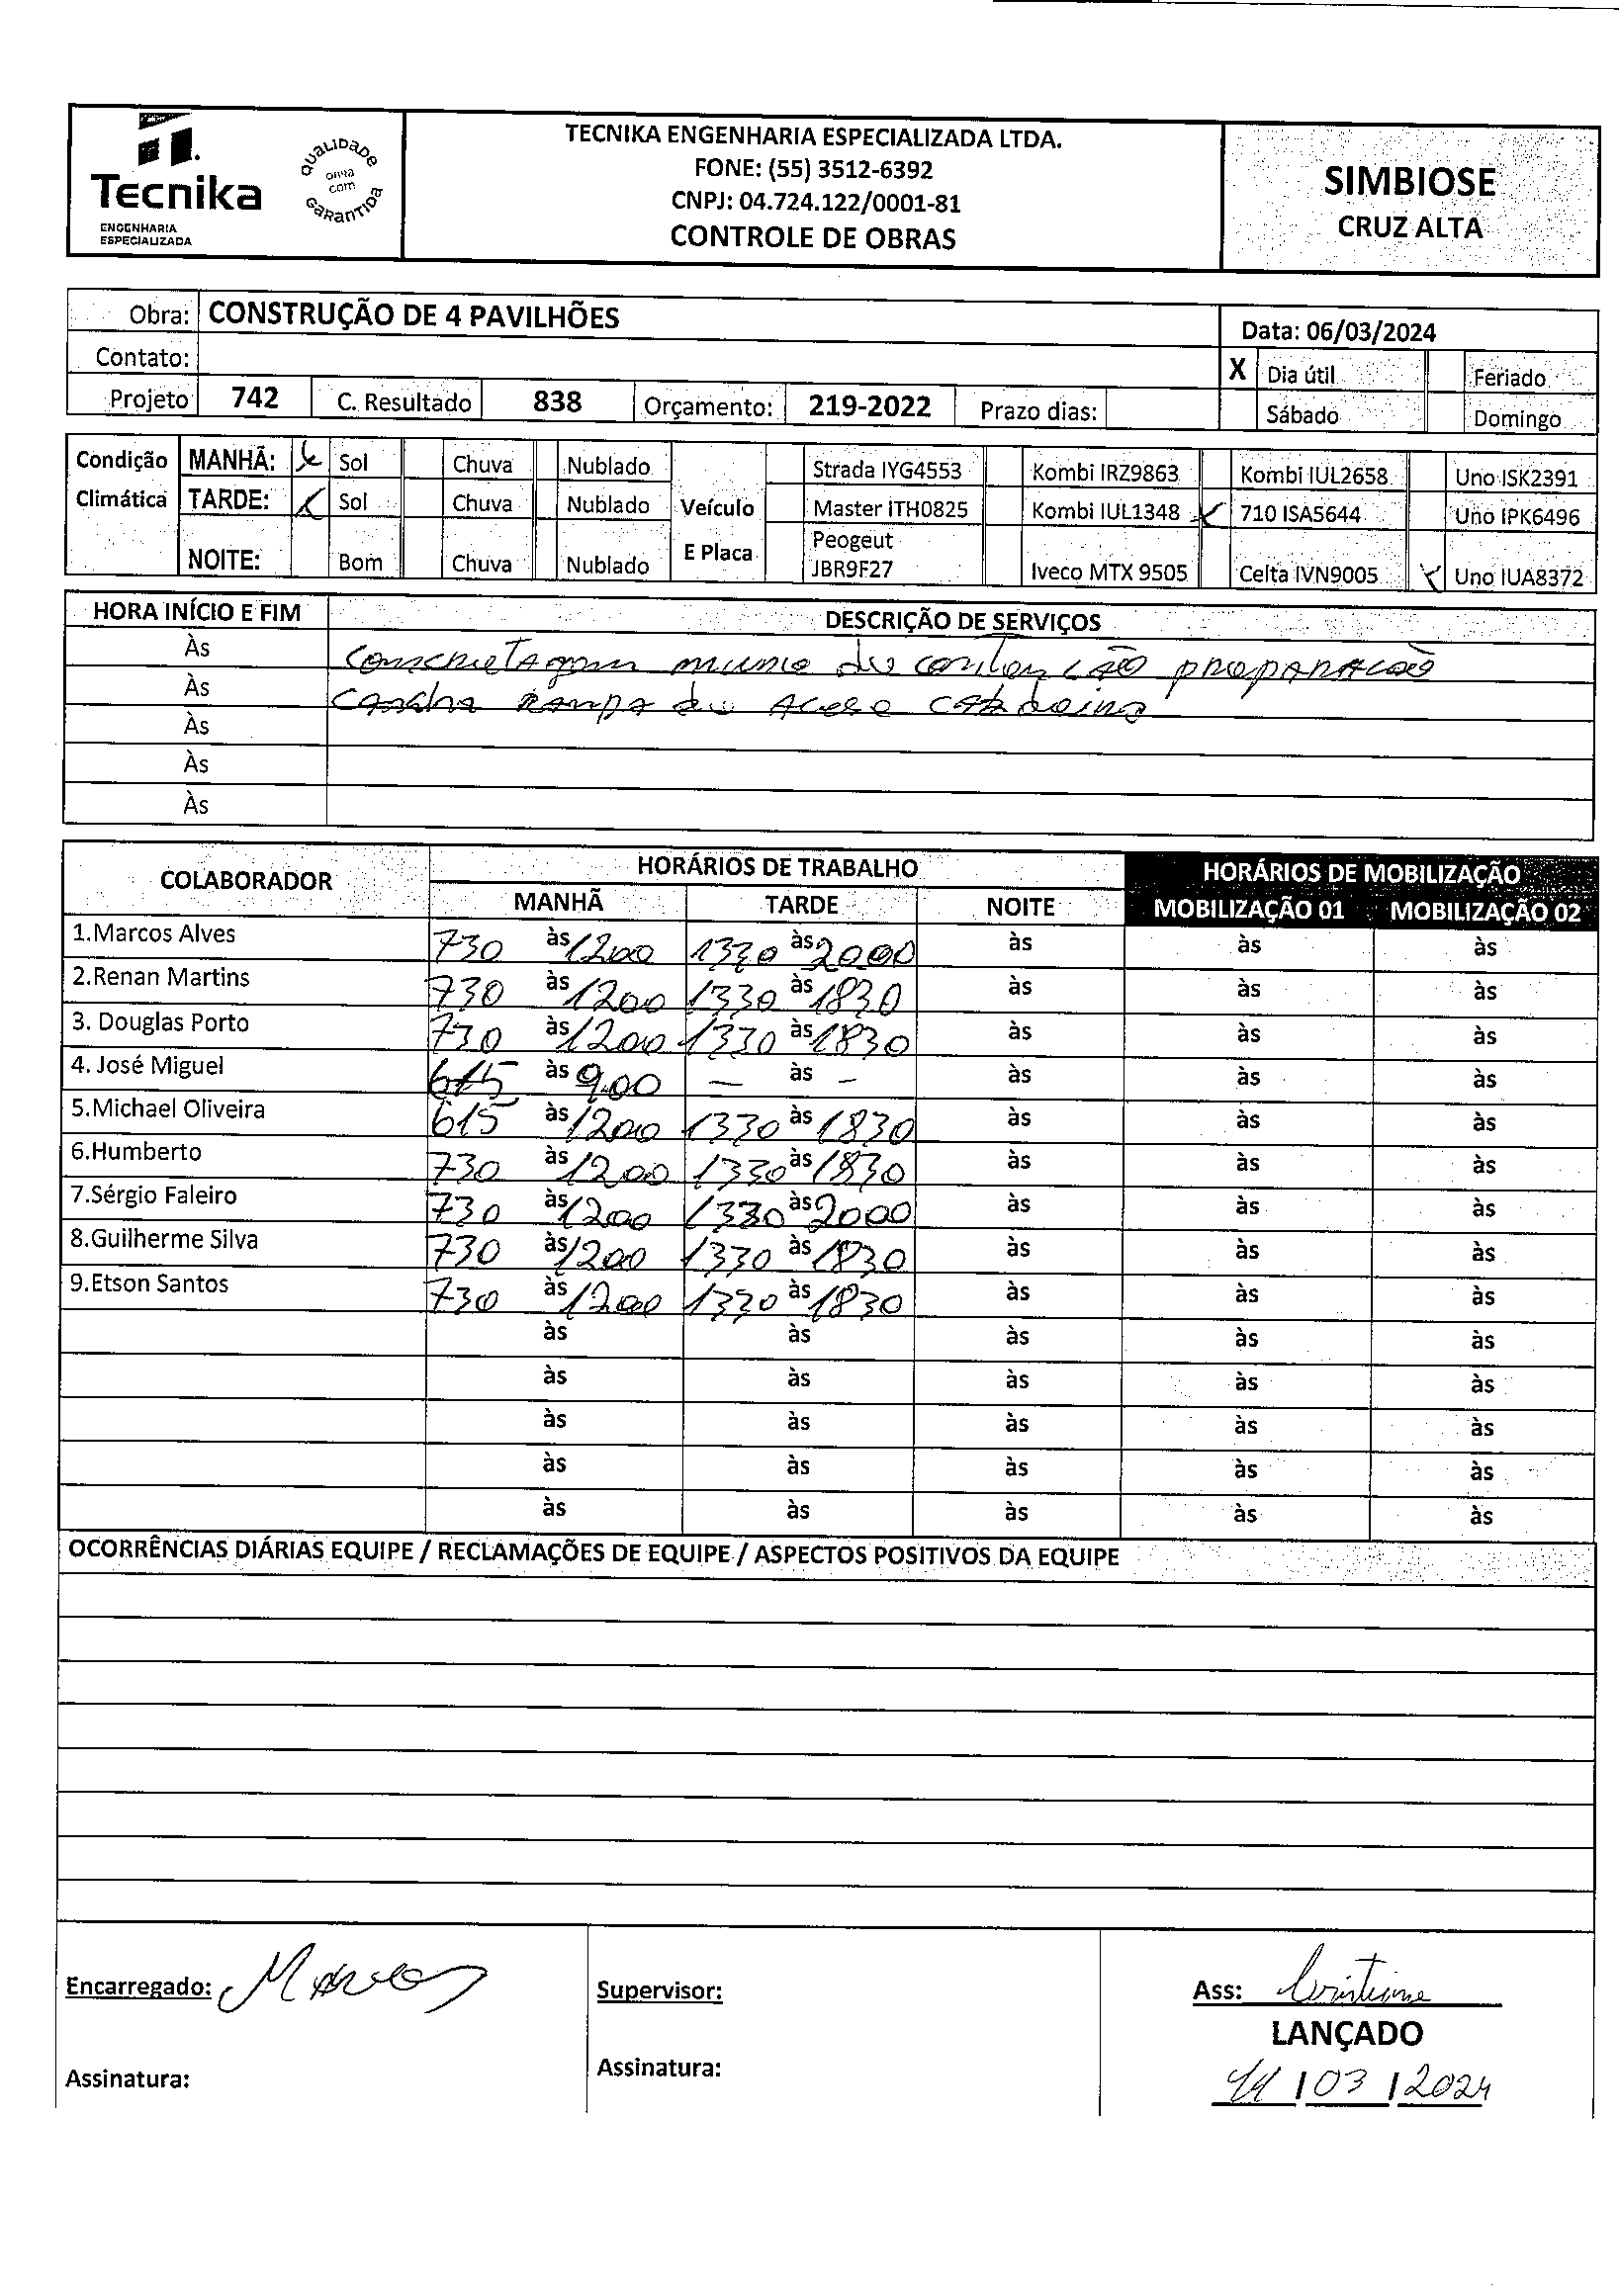 Tecnika
ENGENHARIA
ESPECIALIZADA
QUALIDADE
obra
com
GARANTIDA
TECNIKA ENGENHARIA ESPECIALIZADA LTDA.
FONE: (55) 3512-6392
CNPJ: 04.724.122/0001-81
CONTROLE DE OBRAS
SIMBIOSE
CRUZ ALTA
Obra: CONSTRUÇÃO DE 4 PAVILHÕES
Data: 06/03/2024
Contato:
X Dia útil Feriado
Projeto 742 C. Resultado 838 Orçamento: 219-2022 Prazo dias:
Sábado Domingo
Condição MANHÃ: X Sol Chuva Nublado Strada IYG4553 Kombi IRZ9863 Kombi IUL2658 Uno ISK2391
Climática TARDE: X Sol Chuva Nublado Veículo Master ITH0825 Kombi IUL1348 X 710 ISA5644 Uno IPK6496
NOITE: Bom Chuva Nublado E Placa Peogeut JBR9F27 Iveco MTX 9505 Celta IVN9005 X Uno IUA8372
HORA INÍCIO E FIM DESCRIÇÃO DE SERVIÇOS
Às Concretagem muro de contenção preparação
Às cancha rampa de
Às
Às
Às
COLABORADOR HORÁRIOS DE TRABALHO HORÁRIOS DE MOBILIZAÇÃO
MANHÃ TARDE NOITE MOBILIZAÇÃO 01 MOBILIZAÇÃO 02
1.Marcos Alves 730 às 1200 1330 às 2000 às às às
2.Renan Martins 730 às 1200 1330 às 1830 às às às
3. Douglas Porto 730 às 1200 1330 às 1830 às às às
4. José Miguel 615 às 9.00 — às – às às às
5.Michael Oliveira 615 às 1200 1330 às 1830 às às às
6.Humberto 730 às 1200 1330 às 1830 às às às
7.Sérgio Faleiro 730 às 1200 1330 às 2000 às às às
8.Guilherme Silva 730 às 1200 1330 às 1830 às às às
9.Etson Santos 730 às 1200 1330 às 1830 às às às
às às às às às
às às às às às
às às às às às
às às às às às
às às às às às
OCORRÊNCIAS DIÁRIAS EQUIPE / RECLAMAÇÕES DE EQUIPE / ASPECTOS POSITIVOS DA EQUIPE
Encarregado: Marcos
Supervisor:
Ass: Cristiane
LANÇADO
Assinatura:
Assinatura:
11 / 03 / 2024